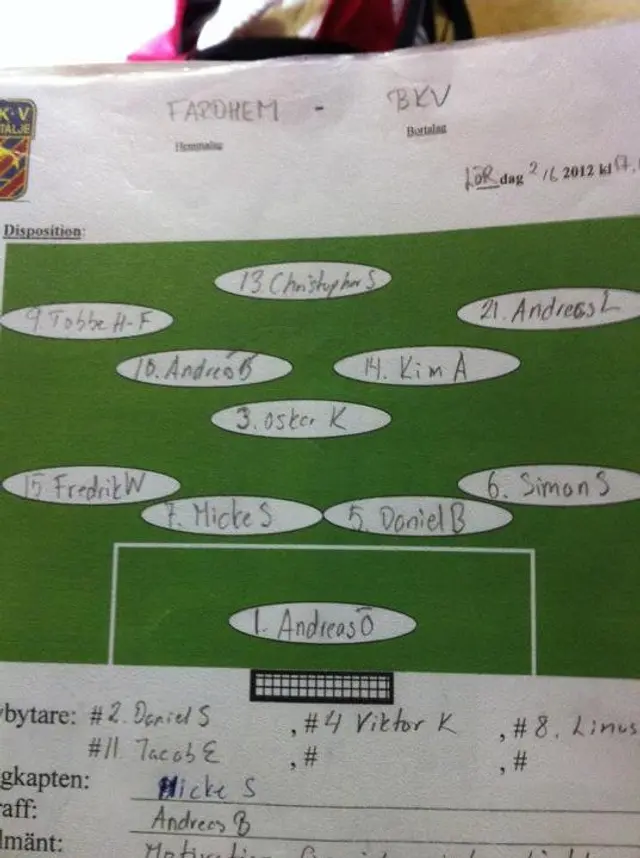 K·V
TÄLJE
FARDHEM - BKV
Hemmalag Bortalag
LÖRdag 2/6 2012 kl 17.
Disposition:
13. Christopher S
9. Tobbe H-F
21. Andreas L
10. Andreas B
14. Kim A
3. Oskar K
15 Fredrik W
6. Simon S
7. Micke S
5. Daniel B
1. Andreas Ö
bytare: #2. Daniel S , #4 Viktor K , #8. Linus
#11 Jacob E , # , #
gkapten: Micke S
raff: Andreas B
lmänt: